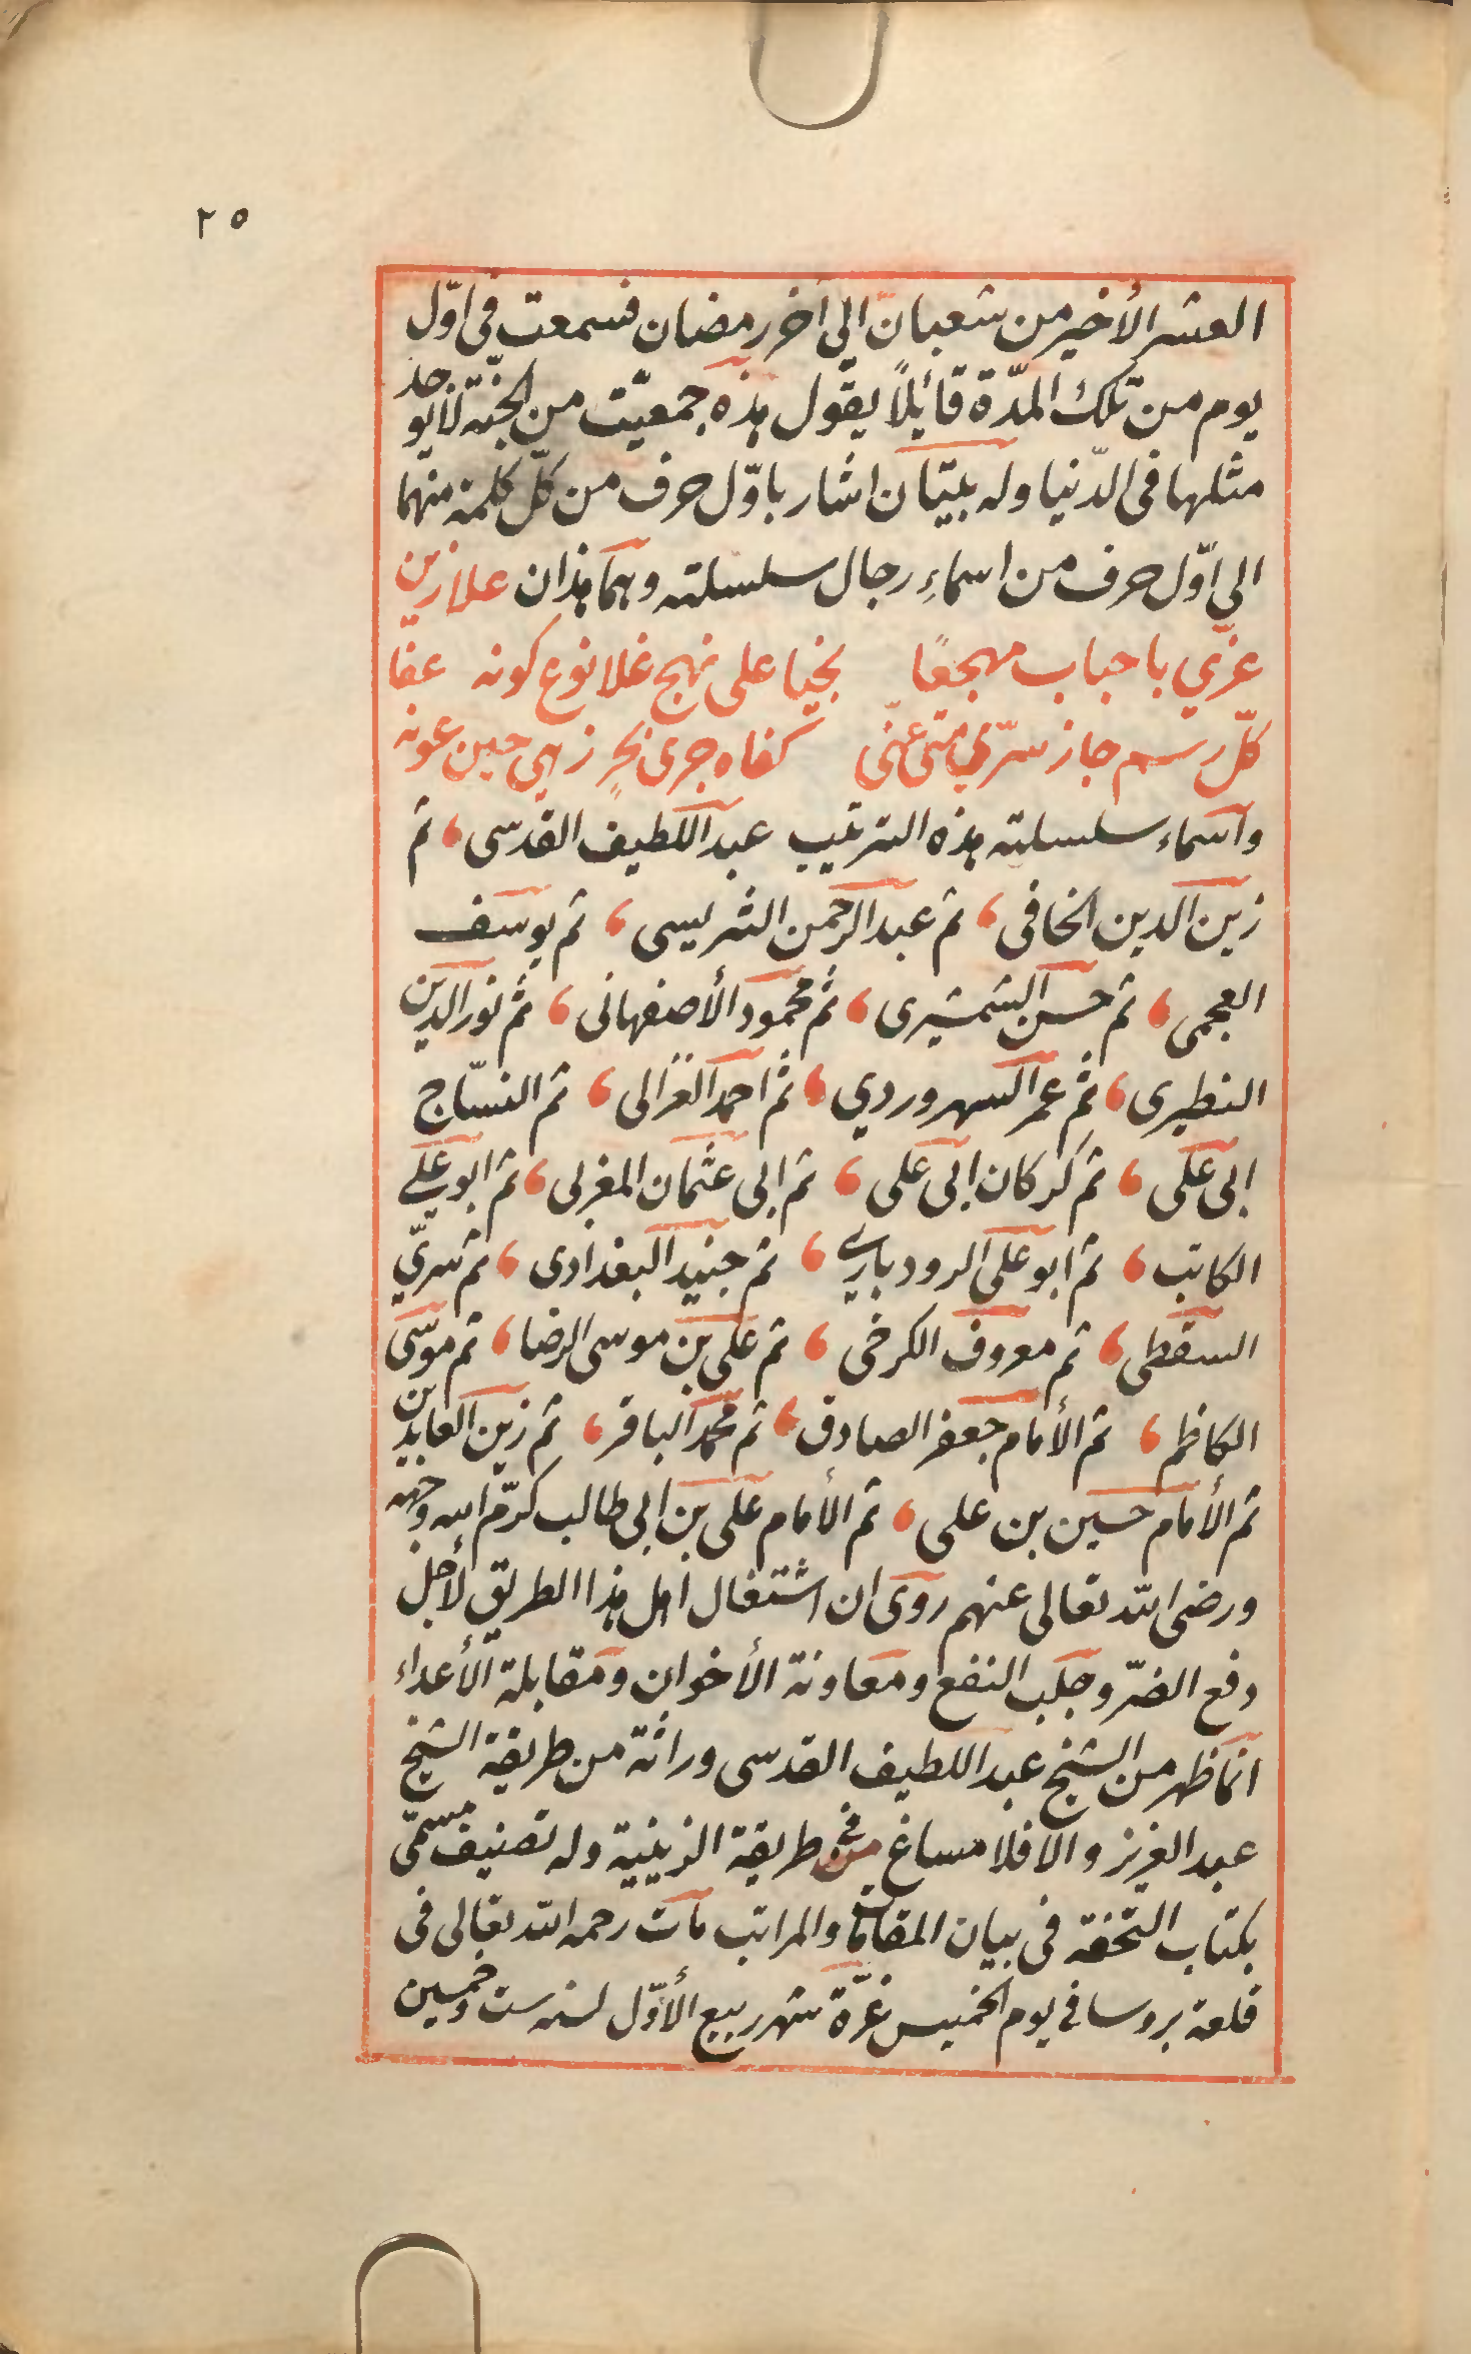 ٢٥
العشر الأخير من شعبان الى اخر رمضان فسمعت فى اوّل
يوم من تلك المدّة قائلاً يقول هذه جمعيّت من الجنّة لا يوجد
مثلها فى الدّنيا وله بيتان اشار باوّل حرف من كلّ كلمة منهما
الى اوّل حرف من اسماءِ رجال سلسلته وهما هذان علا زين
عزّي باحباب مهجعًا بخيا على نهج غلا نوع كونه عفا
كلّ رسم جاز سرّي متى عنّى كفاه جرى بحرٍ زهى حين عونه
واسماء سلسلته هذه الترتيب عبد اللطيف القدسى، ثم
زين الدين الخافى، ثم عبد الرحمن الشريسى، ثم يوسف
العجمى، ثم حسن الشمشيرى، ثم محمود الأصفهانى، ثم نور الدين
النطيرى، ثم عمر السهروردي، ثم احمد الغزالى، ثم النسّاج
ابى على، ثم كركان ابى على، ثم ابى عثمان المغربى، ثم ابو على
الكاتب، ثم ابو على الرودبارى، ثم جنيد البغدادى، ثم سريّ
السقطى، ثم معروف الكرخى، ثم على بن موسى الرضا، ثم موسى
الكاظم، ثم الأمام جعفر الصادق، ثم محمد الباقر، ثم زين العابدين
ثم الأمام حسين بن على، ثم الأمام على بن ابى طالب كرّم الله وجهه
ورضى الله تعالى عنهم روى ان اشتغال اهل هذا الطريق لأجل
دفع الضرّ وجلب النفع ومعاونة الأخوان ومقابلة الأعداء
انما ظهر من الشيخ عبد اللطيف القدسى وراثة من طريقة الشيخ
عبد العزيز والا فلا مساغ فى طريقة الزينية وله تصنيف مسمّى
بكتاب التحفة فى بيان المقامات والمراتب مات رحمه الله تعالى فى
قلعة بروسا فى يوم الخميس غرّة شهر ربيع الأوّل لسنة ست وخمسين